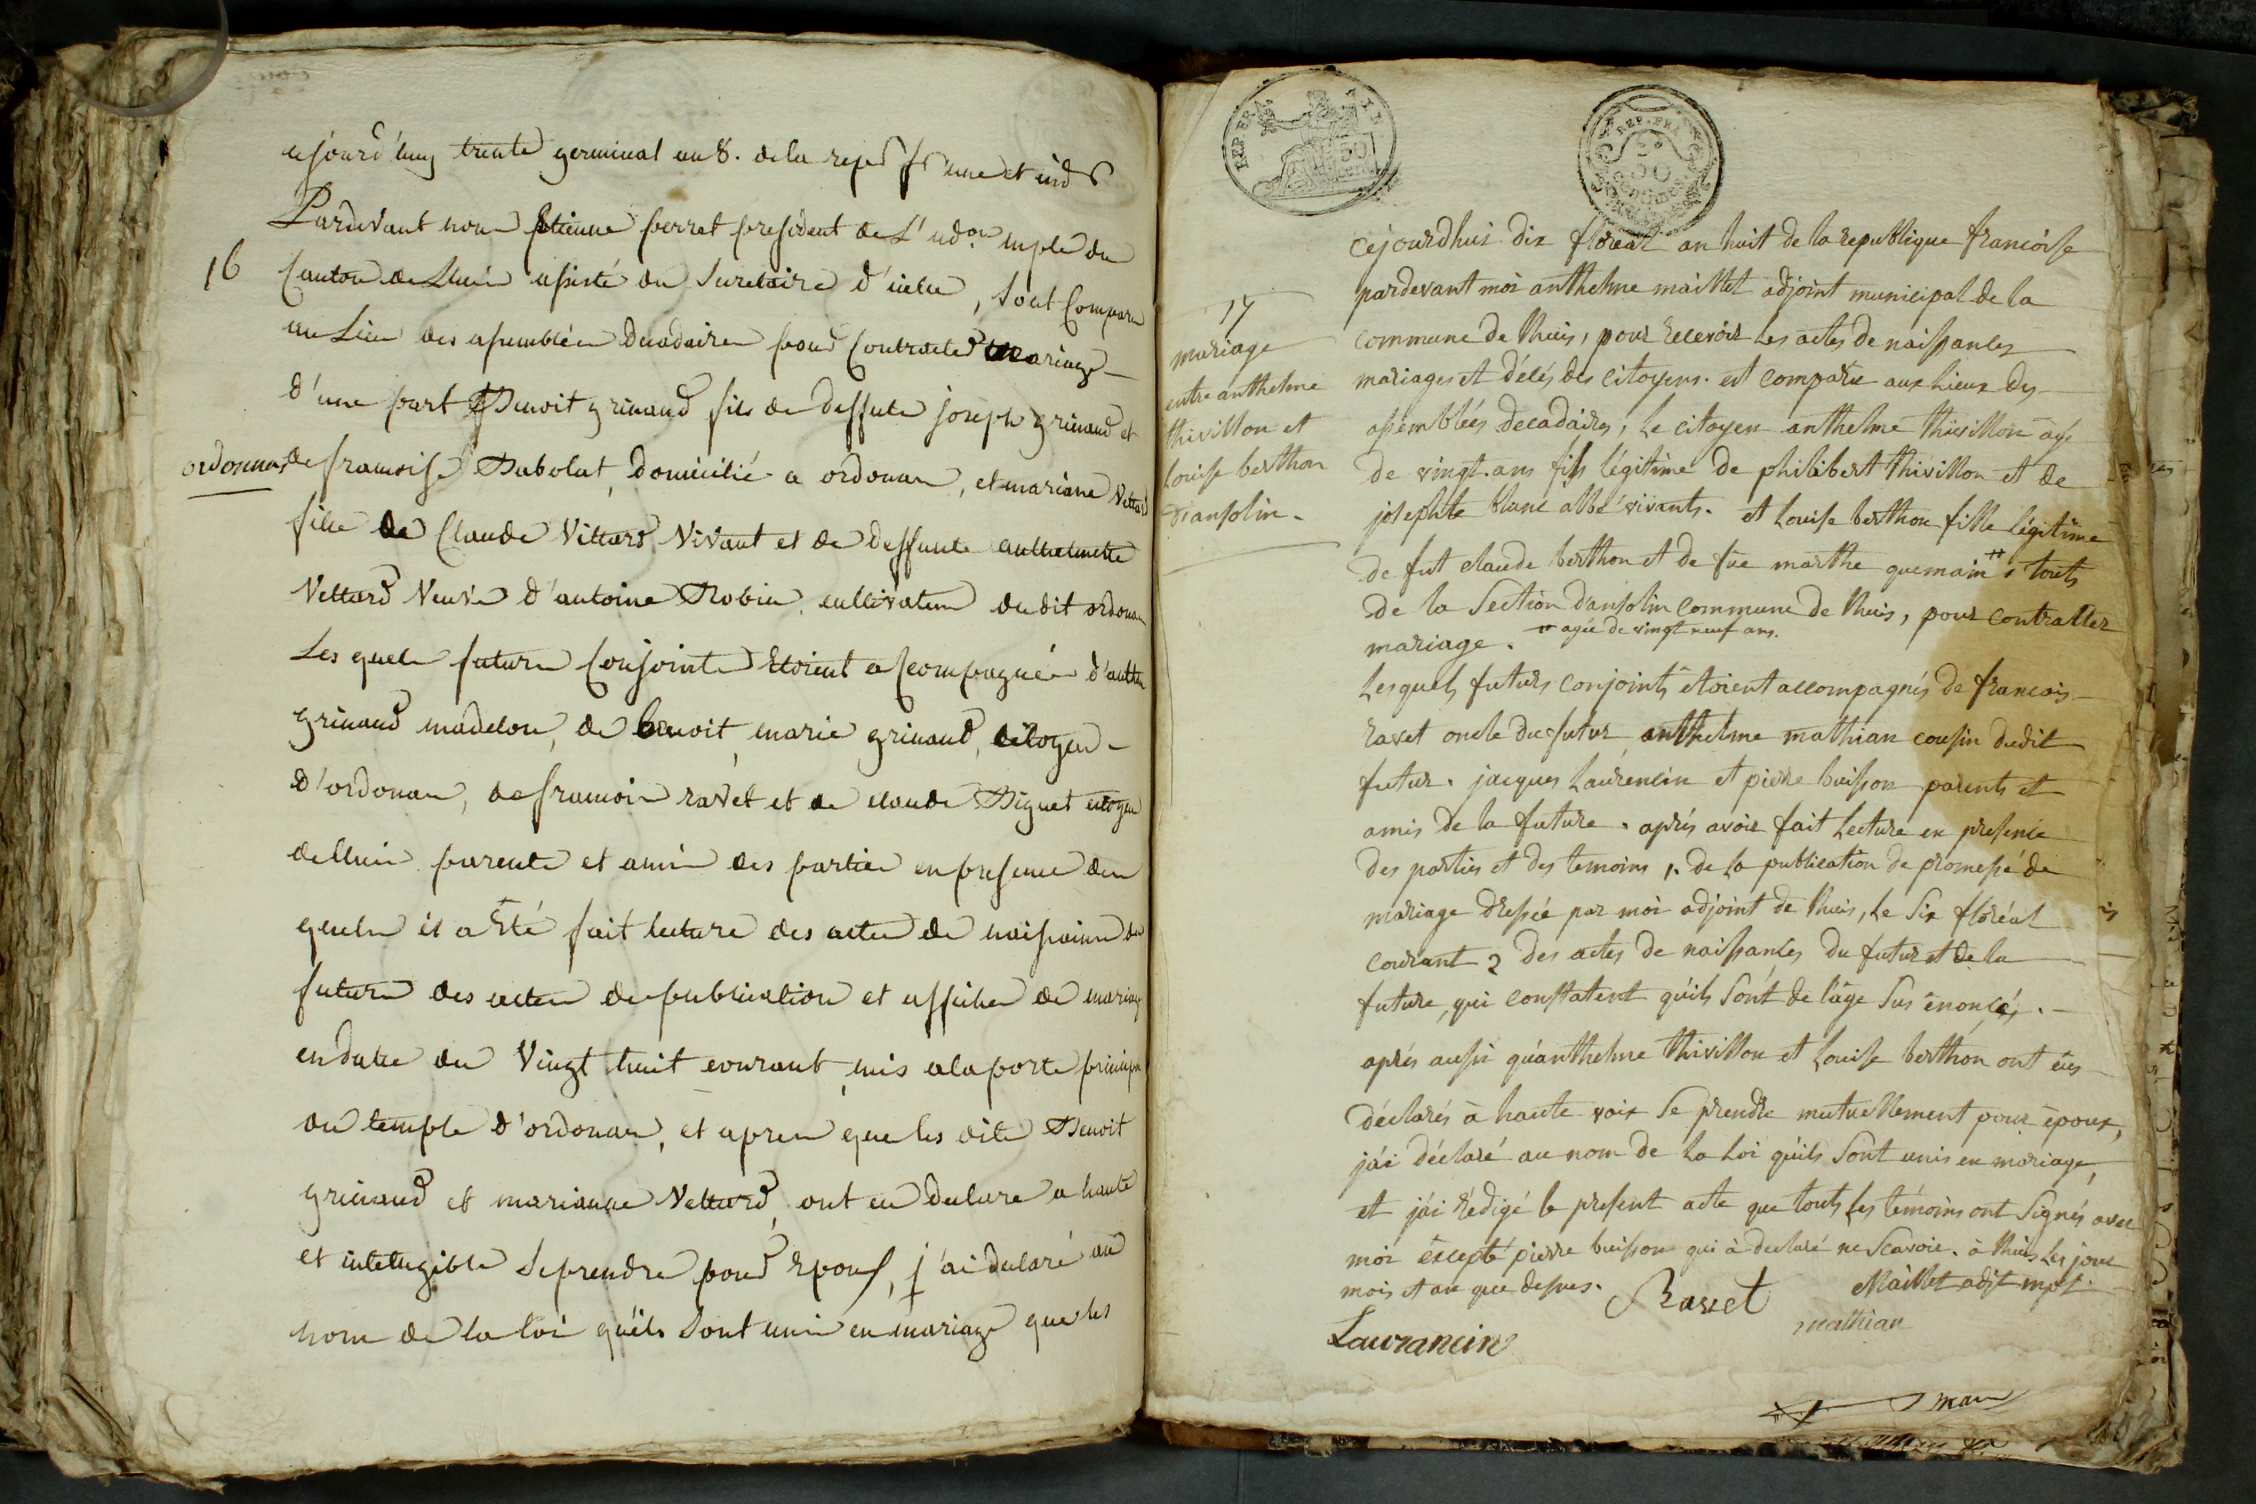 16
ordonnas
cejourd'huy trente germinal an 8. de la repe fse une et inde
Pardevant nous Etienne perret president de L'adon mple du
Canton de Lhuis assisté du Secretaire d'icelle, sont Comparu
au Lieu des assemblées Decadaires pour Contracter mariage
d'une part Benoit grinand fils de deffunt joseph grinand et
de francoise Babolat, domicilié a ordonas, et mariane Vettard
fille de Claude Vittard Vivant et de deffunte anthelmette
Vettard Veuve d'antoine Robin cultivateur dudit ordonas
Les quels futurs Conjoints Etoient acCompagnés d'anth
grinand madelon, de benoit, marie grinand, citoyen
d'ordonas, de francois ravet et de claude Piguet citoyen
de Lhuis parents et amis des parties en presence des
quels il a Eté fait lecture des actes de naissance des
futurs des actes de publication et affiches de mariage
en date du Vingt huit courant, mis a la porte principa
du temple d'ordonas, et apres que les dits Benoit
grinand et marianne Vettard, ont eu declare a haute
et intelligible se prendre pour Epoux, j'ai declaré au
nom de la loi qu'ils sont unis en mariage que les
REP. FRA.
50
REP. FRA.
50
CENTIMES
17
mariage
entre anthelme
thivillon et
Louise berthon
D'ansolin.
cejourdhui dix floréal an huit de la republique francoise
pardevant moi anthelme maillet adjoint municipal de la
commune de lhuis, pour Recevoir les actes de naissances
mariages et décés des citoyens. est comparu aux Lieux des
assemblées decadaires, le citoyen anthelme thivillon agé
de vingt ans fils légitime de philibert thivillon et de
josephte blanc abbé vivants. et Louise berthon fille légitime
de fut claude berthon et de füe marthe quemain # touts
de la Section d'ansolin commune de lhuis, pour contracter
mariage. # agée de vingt neuf ans.
Lesquels futurs conjoints etoient accompagnés de francois
ravet oncle du futur anthelme mathian cousin dudit
futur. jacques Laurencin et pierre buisson parents et
amis de la future. aprés avoir fait Lecture en presence
des parties et des temoins 1. de la publication de promesse de
mariage dressée par moi adjoint de lhuis, le six floréal
courant 2 des actes de naissances du futur et de la
future, qui constatent qu'ils sont de l'age sus enoncés.
aprés aussi qu'anthelme thivillon et Louise berthon ont eus
déclarés à haute voix se prendre mutuellement pour époux,
j'ai déclaré au nom de la Loi qu'ils sont unis en mariage,
et j'ai rédigé le present acte que touts les témoins ont signés avec
moi éxcepté pierre buisson qui à declaré ne scavoir. à lhuis les jour
mois et an que dessus.
Ravet
Maillet adjt mpl.
mathian
Laurancin